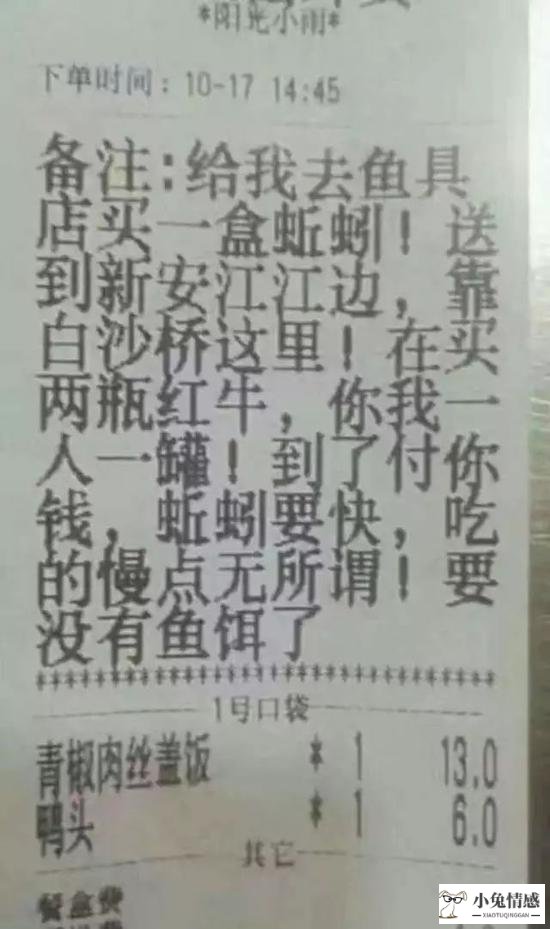 *阳光小雨*
下单时间：10-17 14:45
备注:给我去鱼具
店买一盒蚯蚓！送
到新安江江边，靠
白沙桥这里！在买
两瓶红牛，你我一
人一罐！到了付你
钱，蚯蚓要快，吃
的慢点无所谓！要
没有鱼饵了
********************************
1号口袋
青椒肉丝盖饭 * 1 13.0
鸭头 * 1 6.0
其它
餐盒费
小兔情感
XIAOTUQINGGAN